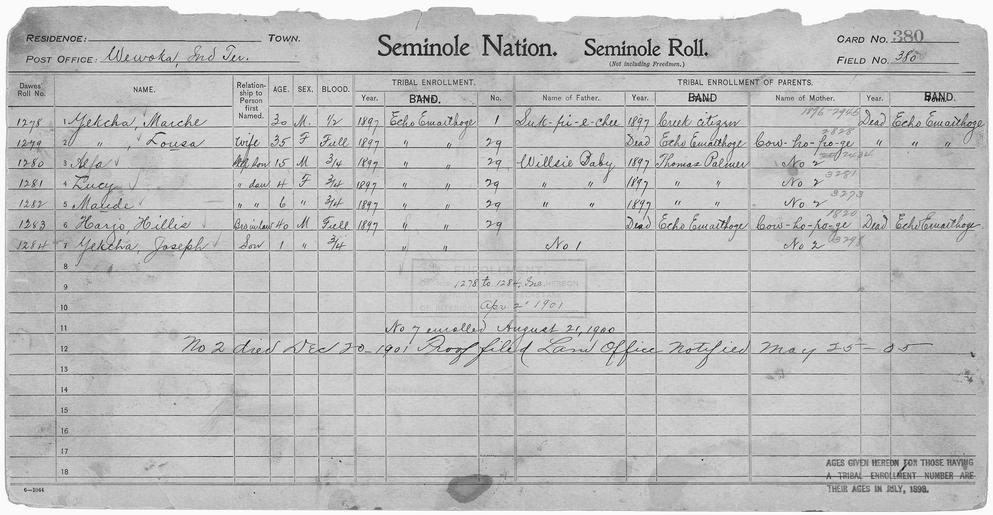 RESIDENCE: TOWN. Seminole Nation. Seminole Roll. CARD NO. 380
(Not including Freedmen.)
POST OFFICE: Wewoka, Ind Ter. FIELD NO. 380
Dawes' Roll No. NAME. Relationship to Person first Named. AGE. SEX. BLOOD. TRIBAL ENROLLMENT. TRIBAL ENROLLMENT OF PARENTS.
Year. BAND. No. Name of Father. Year. BAND Name of Mother. Year. BAND.
1896-2945
1278 1 Yekcha, Marche 30 M. 1/2 1897 Echo Emaithoge 1 Suk-pi-e-chee 1897 Creek citizen Dead Echo Emaithoge
2828
1279 2 " Lousa wife 35 F Full 1897 " " 29 Dead Echo Emaithoge Cow-ho-po-ge " " "
1280 3 Alfa son 15 M. 3/4 1897 " " 29 Willsie Daby 1897 Thomas Palmer No 2
3281
1281 4 Lucy " dau 4 F 3/4 1897 " " 29 " " 1897 " " No 2
3273
1282 5 Maude " " 6 " 3/4 1897 " " 29 " " 1897 " " No 2
1820
1283 6 Harjo, Hillis Bro in law 40 M Full 1897 " " 29 Dead Echo Emaithoge Cow-ho-po-ge Dead Echo Emaithoge
3298
1284 7 Yekcha, Joseph Son 1 " 3/4 " " No 1 No 2
8
ENROLLMENT
9 1278 to 1284, Inc. HEREON
10 Apr 2" 1901
11 No 7 enrolled August 21, 1900
12 No 2 died Dec 20-1901 Proof filed Land Office Notified May 25-05
13
14
15
16
17
18
AGES GIVEN HEREON FOR THOSE HAVING
A TRIBAL ENROLLMENT NUMBER ARE
THEIR AGES IN JULY, 1898.
6-1064